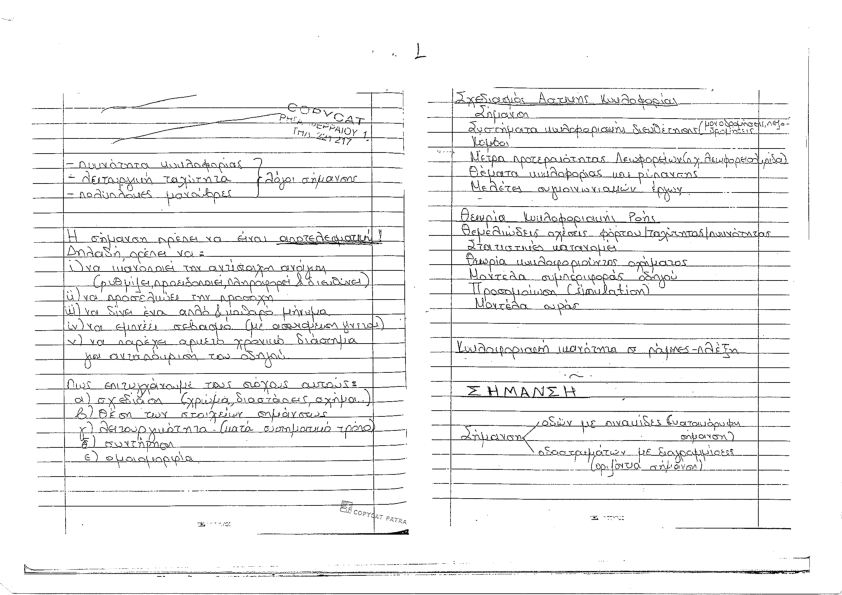 1
COPYCAT
ΡΗΓΑ ΦΕΡΡΑΙΟΥ 1
ΤΗΛ. 221 217
- πυκνότητα κυκλοφορίας
- λειτουργική ταχύτητα } λόγοι σήμανσης
- πολύπλοκες μανούβρες
Η σήμανση πρέπει να είναι αποτελεσματική!
Δηλαδή πρέπει να:
i) να ικανοποιεί την αντίστοιχη ανάγκη
(ρυθμίζει, προειδοποιεί, πληροφορεί & διευθύνει)
ii) να προσελκύει την προσοχή
iii) να δίνει ένα απλό & καθαρό μήνυμα
iv) να εμπνέει σεβασμό (με αστυνόμευση γίνεται)
v) να παρέχει αρκετό χρονικό διάστημα
για ανταπόκριση του οδηγού.
Πως επιτυγχάνουμε τους στόχους αυτούς:
α) σχεδίαση (χρώμα, διαστάσεις, σχήμα..)
β) θέση των στοιχείων σημάνσεως
γ) λειτουργικότητα (κατά συστηματικό τρόπο)
δ) συντήρηση
ε) ομοιομορφία
COPYCAT PATRA
Σχεδιασμός Αστικής Κυκλοφορίας
Σήμανση
Συστήματα κυκλοφοριακής διευθέτησης (μονοδρομήσεις, πεζοδρομήσεις
Κόμβοι
Μέτρα προτεραιότητας Λεωφορείων (π.χ. λεωφορειολωρίδα)
Θέματα κυκλοφορίας και ρύπανσης
Μελέτες συγκοινωνιακών έργων
Θεωρία Κυκλοφοριακής Ροής
Θεμελιώδεις σχέσεις φόρτου/ταχύτητας/πυκνότητας
Στατιστικές κατανομές
Θεωρία κυκλοφορούντος οχήματος
Μοντέλα συμπεριφοράς οδηγού
Προσομοίωση (simulation)
Μοντέλα ουράς
Κυκλοφοριακή ικανότητα σε ράμπες-πλέξη
ΣΗΜΑΝΣΗ
οδών με πινακίδες (κατακόρυφη
Σήμανση σήμανση)
οδοστρωμάτων με διαγραμμίσεις
(οριζόντια σήμανση)